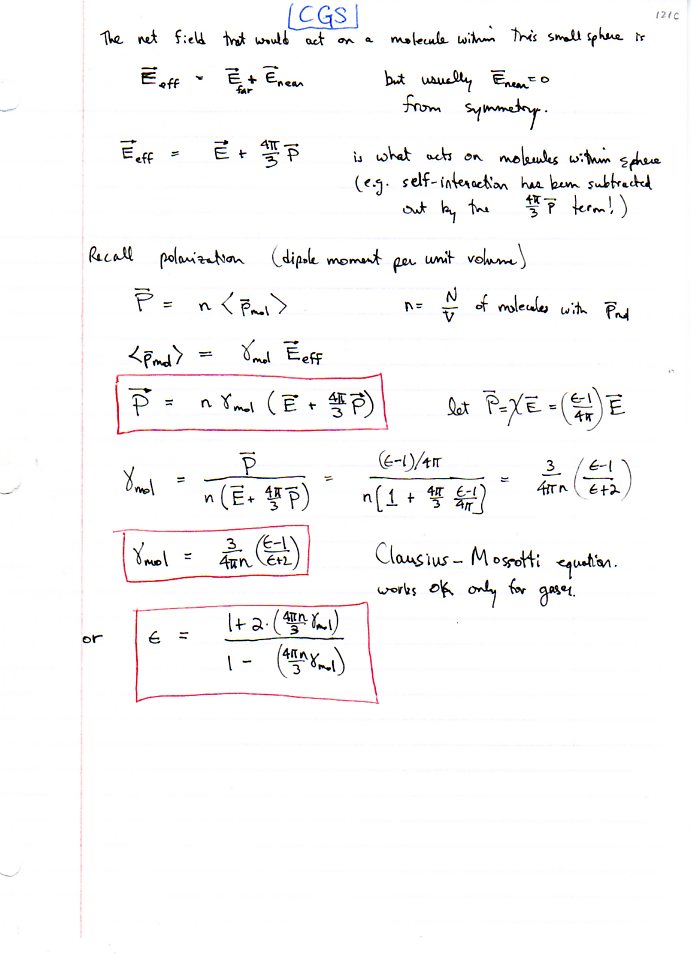 [CGS]
121C
The net field that would act on a molecule within this small sphere is
E⃗eff = E⃗far + E⃗near but usually E⃗near = 0
from symmetry.
E⃗eff = E⃗ + 4π/3 P⃗ is what acts on molecules within sphere
(e.g. self-interaction has been subtracted
out by the 4π/3 P⃗ term!)
Recall polarization (dipole moment per unit volume)
P⃗ = n <p⃗mol> n = N/V of molecules with p⃗mol
<p⃗mol> = γmol E⃗eff
P⃗ = n γmol (E⃗ + 4π/3 P⃗) let P⃗ = χE⃗ = (ϵ-1/4π) E⃗
γmol = P⃗ / n(E⃗ + 4π/3 P⃗) = (ϵ-1)/4π / n[1 + 4π/3 ϵ-1/4π] = 3/4πn (ϵ-1/ϵ+2)
γmol = 3/4πn (ϵ-1/ϵ+2) Clausius-Mossotti equation.
works OK only for gases.
or ϵ = 1 + 2·(4πn/3 γmol) / 1 - (4πn/3 γmol)